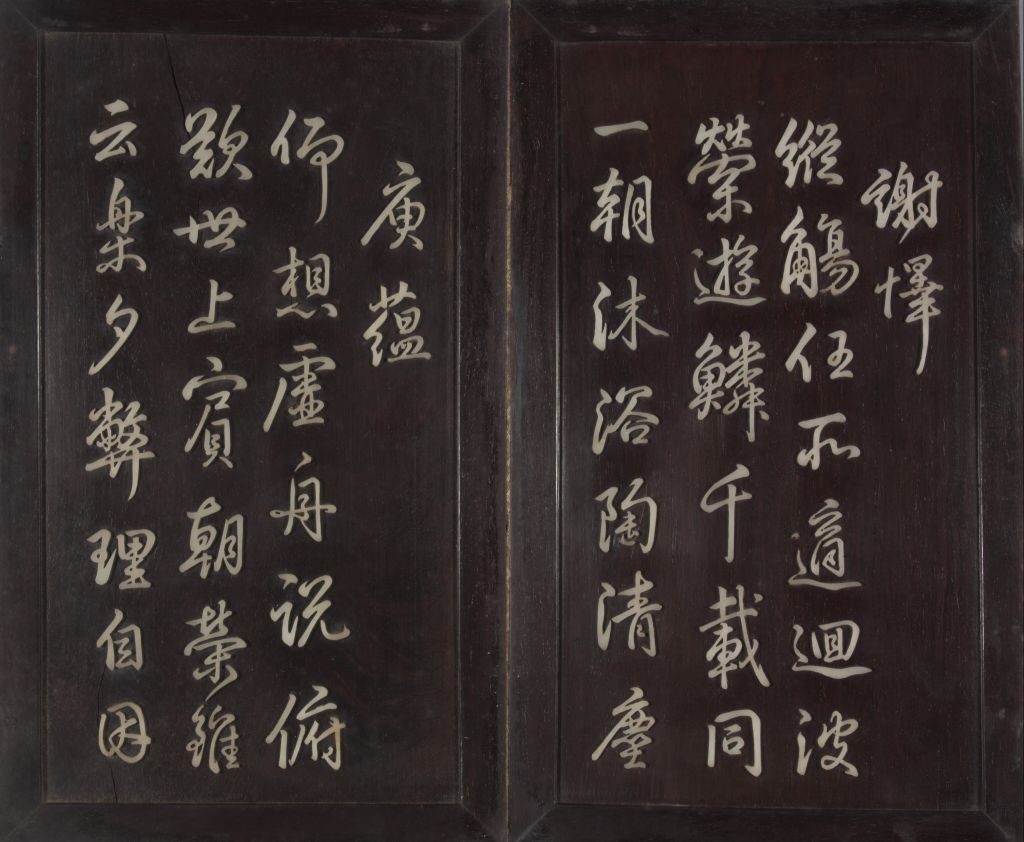 謝懌
縱觴任所適迴波
縈遊鱗千載同
一朝沐浴陶清塵
庾蘊
仰想虛舟說俯
歎世上賓朝榮雖
云樂夕弊理自因